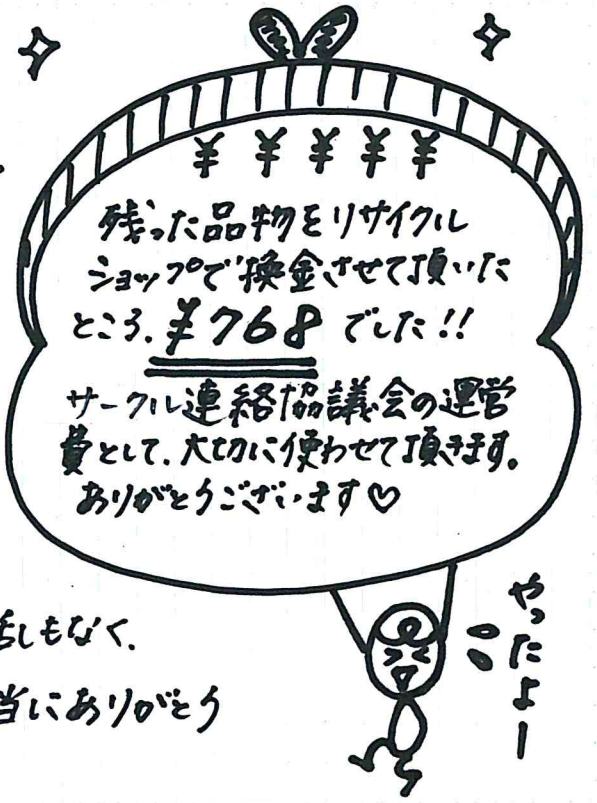 ¥ ¥ ¥ ¥ ¥
残った品物をリサイクル
ショップで換金させて頂いた
ところ、¥768でした!!
サークル連絡協議会の運営
費として、大切に使わせて頂きます。
ありがとうございます♡
やったよー
しもなく、
当にありがとう